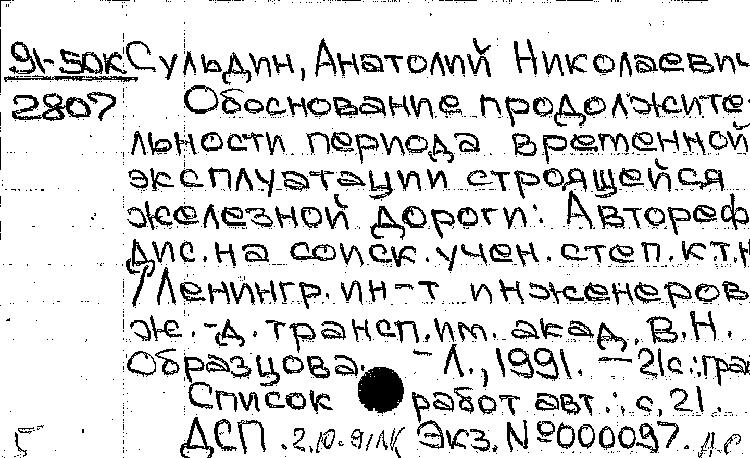 91-50К Сульдин, Анатолий Николаевич
2807 Обоснование продолжите-
льности периода временной
эксплуатации строящейся
железной дороги: Автореф
дис. на соиск. учен. степ. к.т.н
/ Ленингр. ин-т инженеров
ж.-д. трансп. им. акад. В.Н.
Образцова. - Л., 1991. - 21с.: граф
Список работ авт.: с. 21.
5 ДСП. 2.10.91 Экз. №000097.